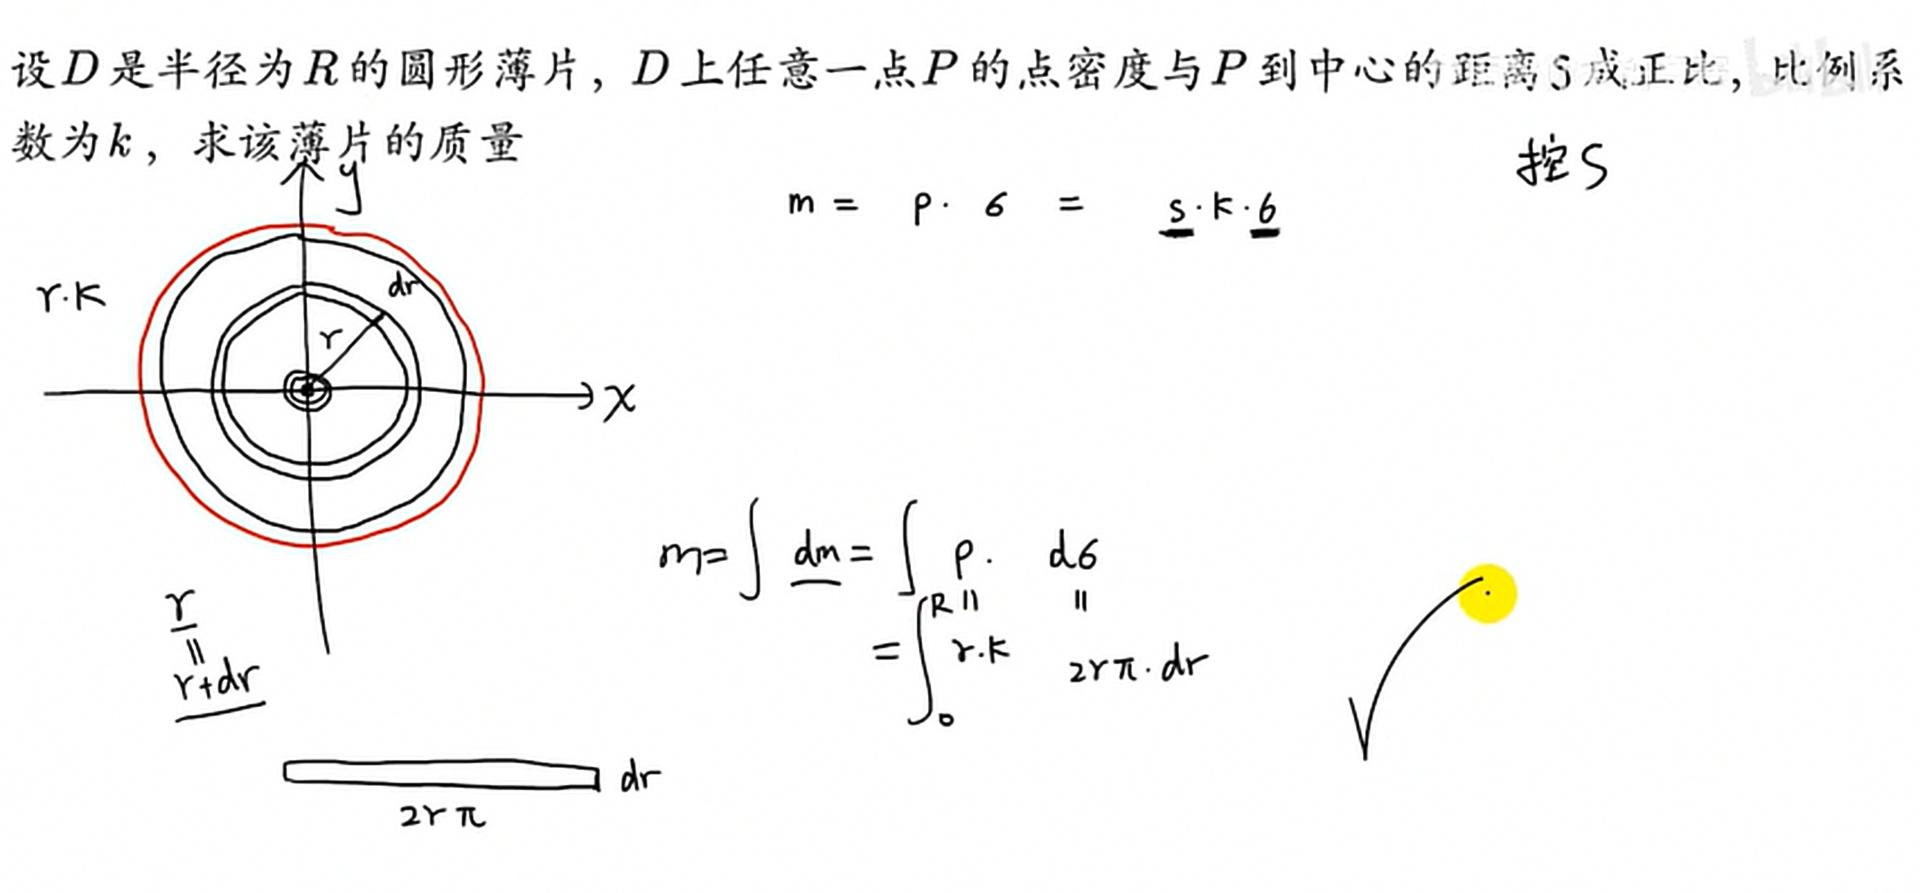 设D是半径为R的圆形薄片，D上任意一点P的点密度与P到中心的距离S成正比，比例系
数为k，求该薄片的质量
控S
y
m = ρ· σ = s·k·σ
r·k
dr
r
x
m=∫ dm = ∫ ρ· dσ
R || ||
= ∫ r·k 2rπ·dr
0
r
||
r+dr
dr
2rπ